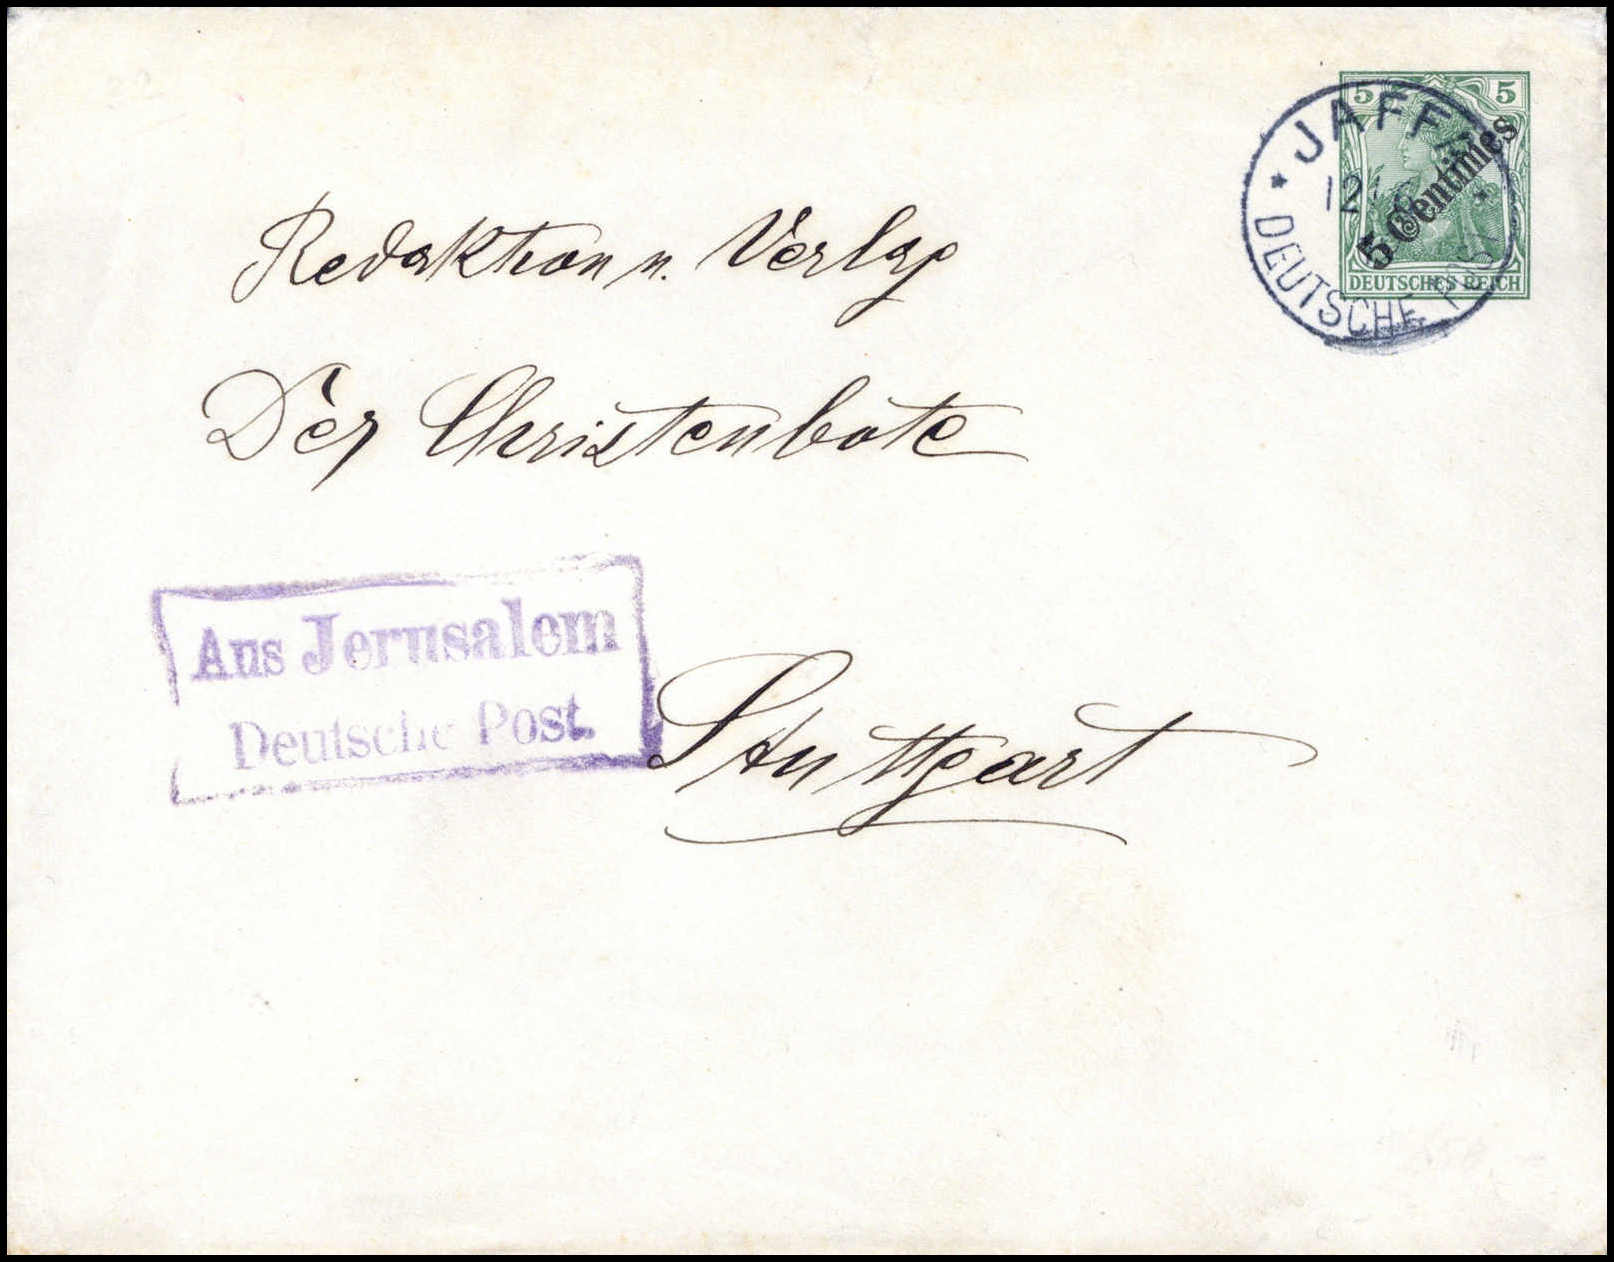 5 5
JAFFA
12
5 Centimes
DEUTSCHES REICH
DEUTSCHE POST
Redaktion u. Verlag
Der Christenbote
Aus Jerusalem
Deutsche Post.
Stuttgart